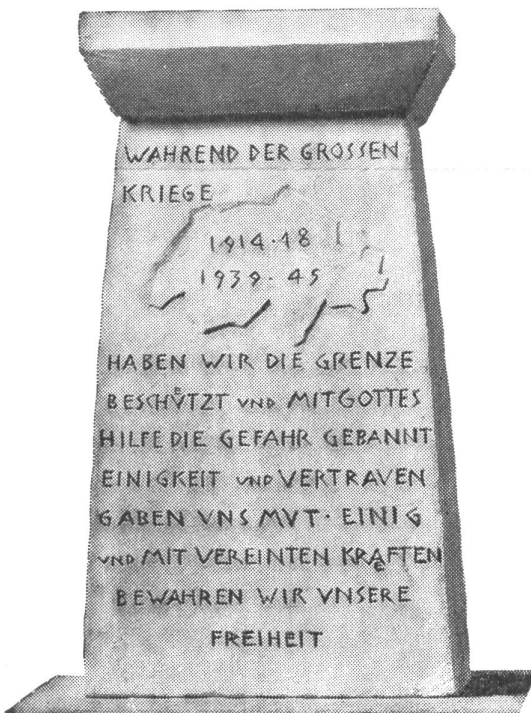 WAHREND DER GROSSEN
KRIEGE
1914·18
1939·45
HABEN WIR DIE GRENZE
BESCHVͤTZT VND MIT GOTTES
HILFE DIE GEFAHR GEBANNT
EINIGKEIT VND VERTRAVEN
GABEN VNS MVT · EINIG
VND MIT VEREINTEN KRAͤFTEN
BEWAHREN WIR VNSERE
FREIHEIT